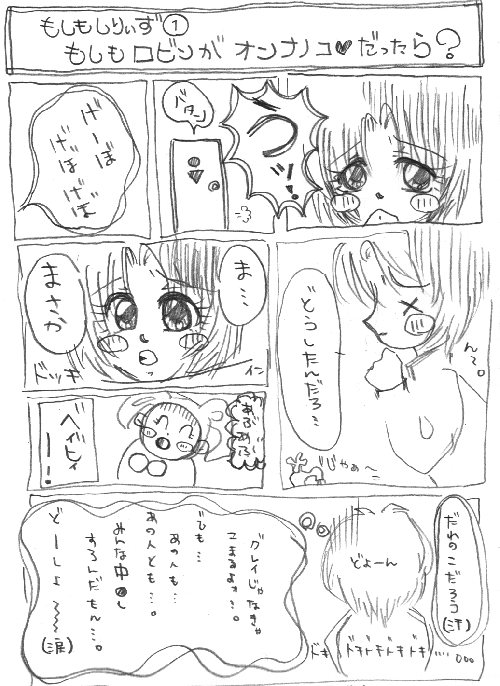 もしもしりぃず①
もしもロビンがオンナノコ♥だったら？
うっ!!
バタン
げーぼ
げぼ
げぼ
どうしたんだろ…
ん…。
じゃあ〜
ま…
まさか
ドッキーン
あぶあぶ
ベイビィーー!
だれのこだろコ(汗)
どよーん
ドキドキドキドキドキ…。。。
グレイじゃなきゃ
こまるよォ…。
でも…
あの人も…
あの人とも…。
みんな中●し
するんだもん…。
どーしよ〜〜(涙)